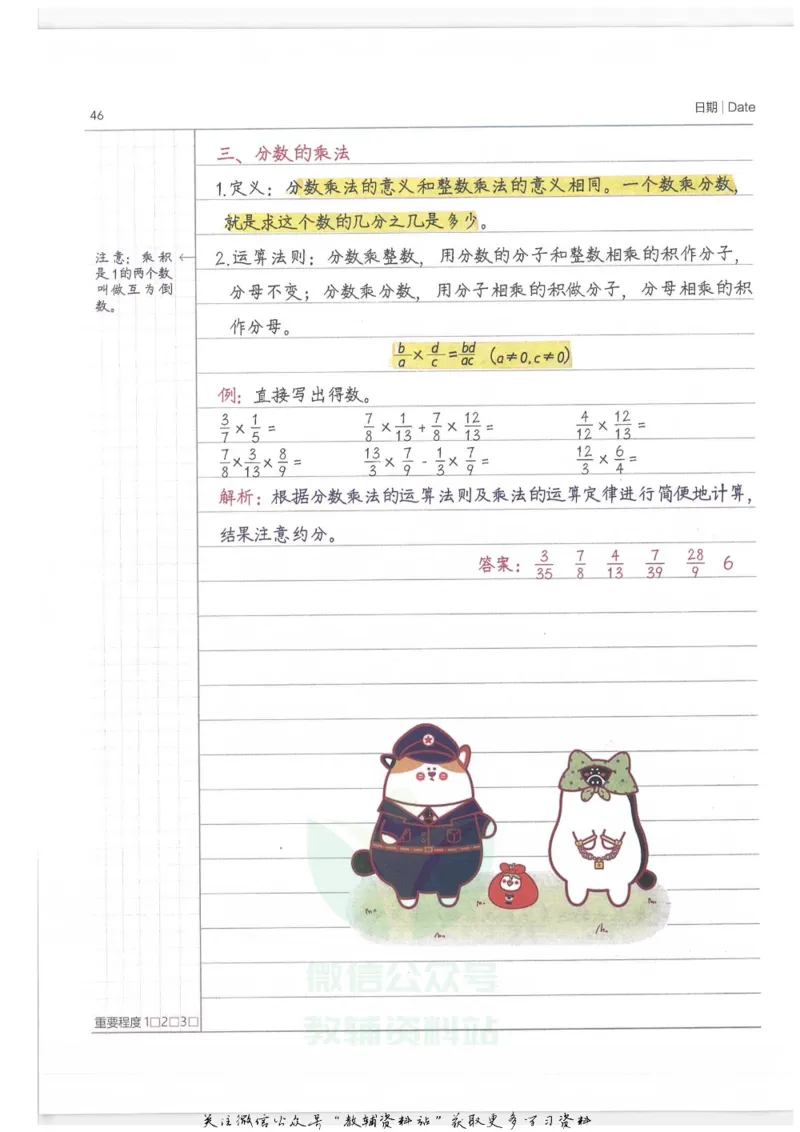 46
日期 | Date
三、分数的乘法
1.定义：分数乘法的意义和整数乘法的意义相同。一个数乘分数，
就是求这个数的几分之几是多少。
注意：乘积
是1的两个数
叫做互为倒
数。
2.运算法则：分数乘整数，用分数的分子和整数相乘的积作分子，
分母不变；分数乘分数，用分子相乘的积做分子，分母相乘的积
作分母。
b/a × d/c = bd/ac (a≠0,c≠0)
例：直接写出得数。
3/7 × 1/5 = 7/8 × 1/13 + 7/8 × 12/13 = 4/12 × 12/13 =
7/8 × 3/13 × 8/9 = 13/3 × 7/9 - 1/3 × 7/9 = 12/3 × 6/4 =
解析：根据分数乘法的运算法则及乘法的运算定律进行简便地计算，
结果注意约分。
答案：3/35 7/8 4/13 7/39 28/9 6
微信公众号
教辅资料站
重要程度 1□2□3□
关注微信公众号"教辅资料站"获取更多学习资料